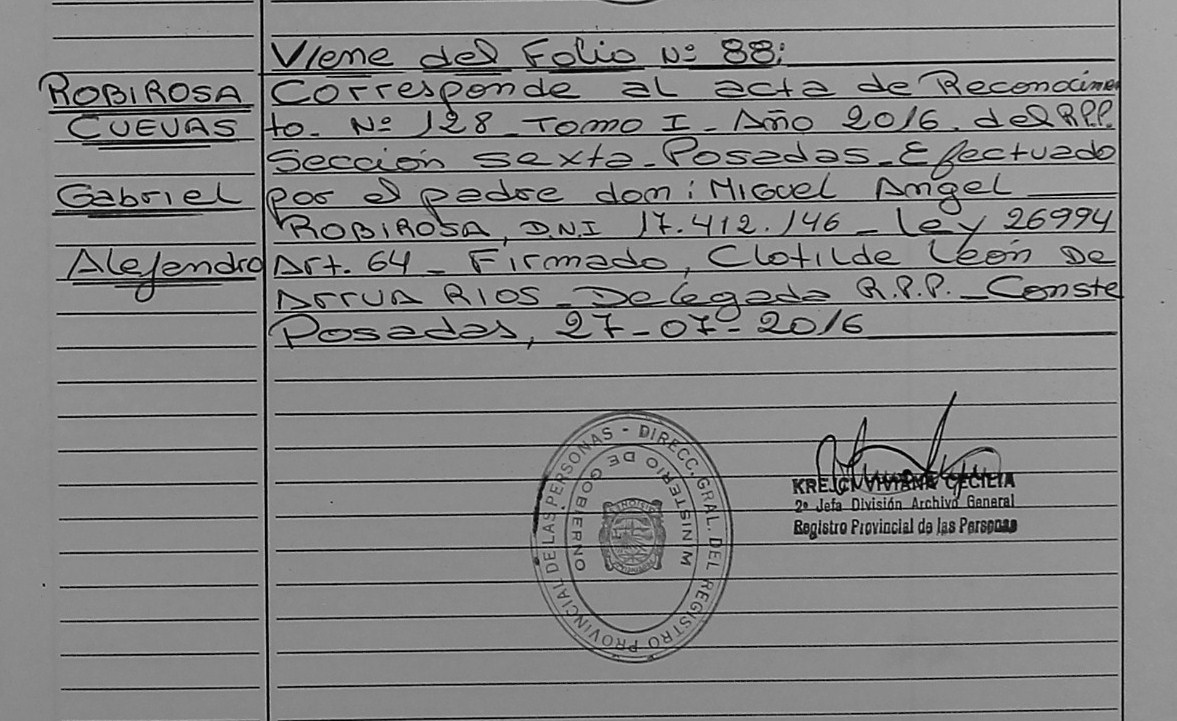 Viene del Folio Nº 88:
ROBIROSA
CUEVAS
Gabriel
Alejandro
Corresponde al acta de Reconocimien
to. Nº 128 - Tomo I - Año 2016. del R.P.P.
Sección sexta - Posadas - Efectuado
por el padre don: Miguel Angel
ROBIROSA, D.N.I 17.412.146 - Ley 26994
Art. 64 - Firmado, Clotilde León De
Arrua RIOS - Delegada R.P.P. - Conste
Posadas, 27-07-2016
DIRECC. GRAL. DEL REGISTRO PROVINCIAL DE LAS PERSONAS -
MINISTERIO DE GOBIERNO
KREJCI VIVIANA CECILIA
2º Jefa División Archivo General
Registro Provincial de las Personas